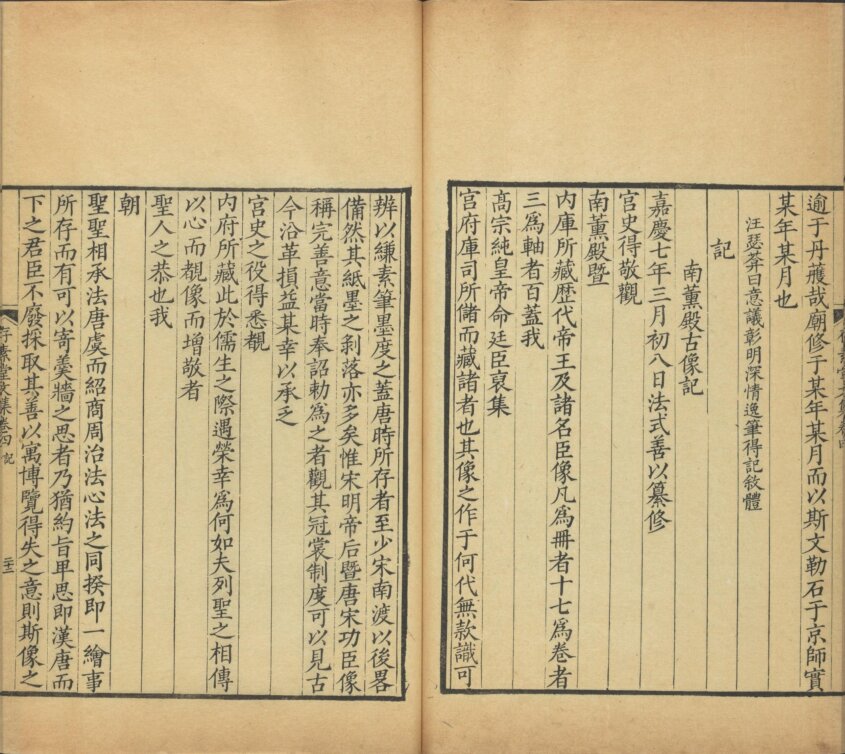 逾于丹雘哉廟修于某年某月而以斯文勒石于京師實
某年某月也
汪瑟菴曰意議彰明深情逸筆得記敘體
記
南薰殿古像記
嘉慶七年三月初八日法式善以纂修
宮史得敬觀
南薰殿暨
內庫所藏歷代帝王及諸名臣像凡爲冊者十七爲卷者
三爲軸者百蓋我
高宗純皇帝命廷臣裒集
宮府庫司所儲而藏諸者也其像之作于何代無款識可
辨以縑素筆墨度之蓋唐時所存者至少宋南渡以後畧
備然其紙墨之剝落亦多矣惟宋明帝后暨唐宋功臣像
稱完善意當時奉詔勅爲之者觀其冠裳制度可以見古
今沿革損益某幸以承乏
宮史之役得悉覩
內府所藏此於儒生之際遇榮幸爲何如夫列聖之相傳
以心而覩像而增敬者
聖人之恭也我
朝
聖聖相承法唐虞而紹商周治法心法之同揆即一繪事
所存而有可以寄羹牆之思者乃猶約旨卑思即漢唐而
下之君臣不廢採取其善以寓博覽得失之意則斯像之
存素堂文集卷四 記 二十三